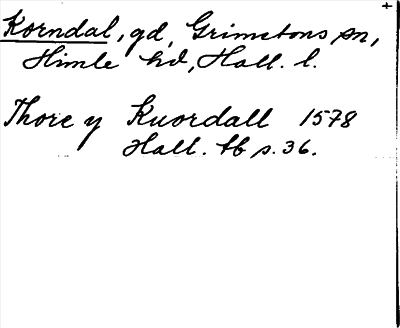 Korndal, gd, Grimetons sn,
Himle hd, Hall. l.
Thore y Kuordall 1578
Hall. tb s. 36.